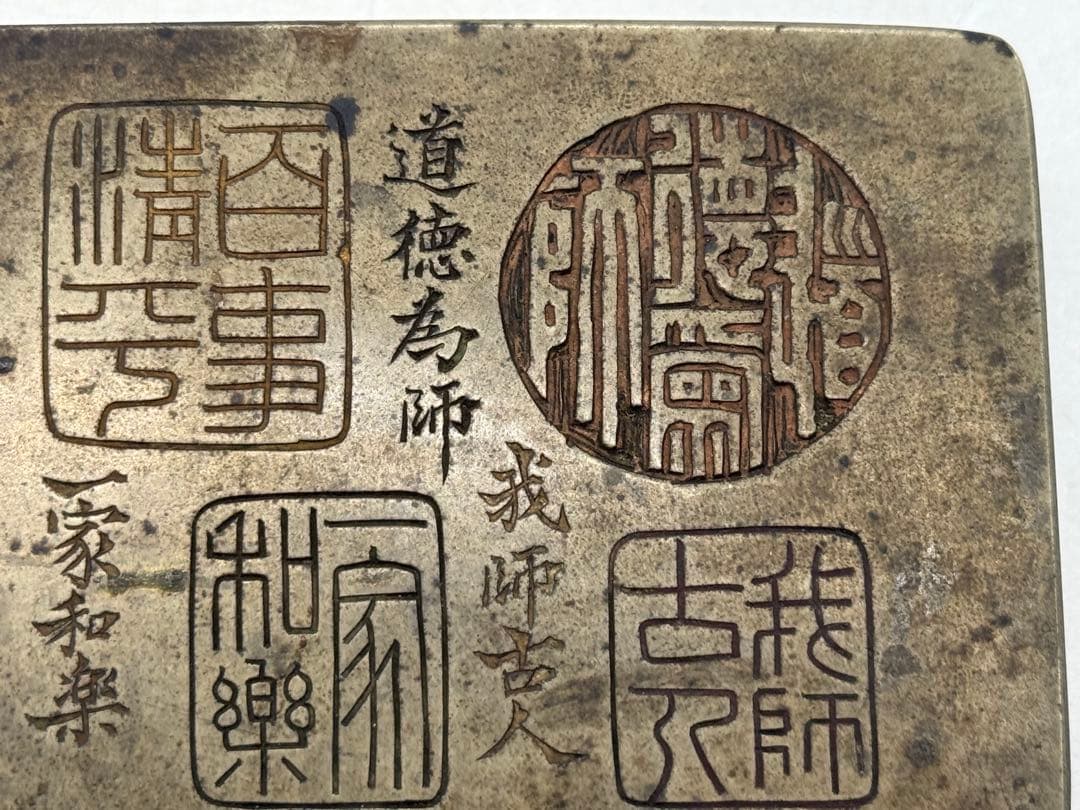 道
德為
師
道德為師
我師
古人
我師古人
百事
清平
一家
和樂
一家和楽